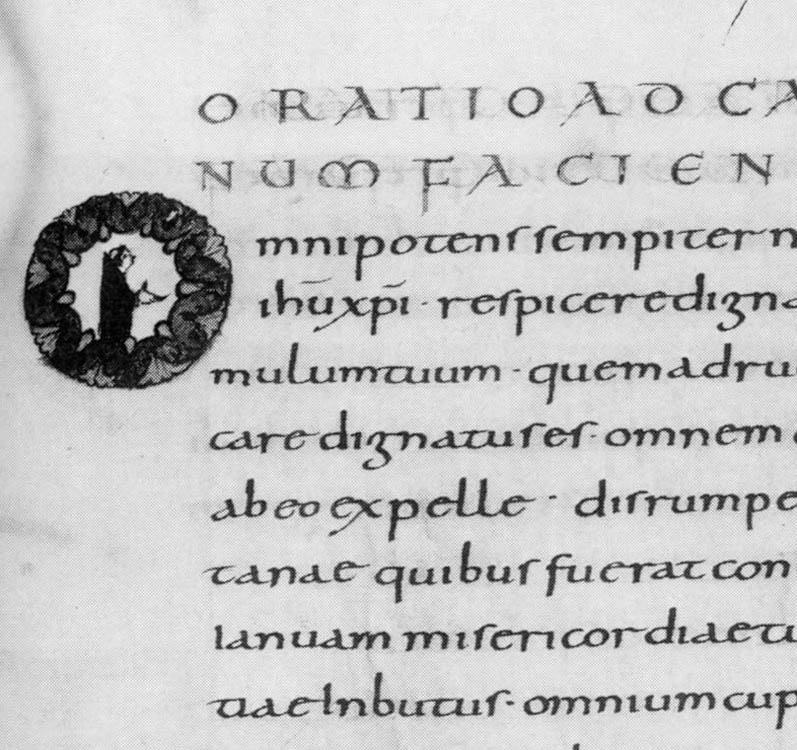 ORATIO AD CA
NUM FACIEN
Omnipotenſ ſempitern
ihū xpī · reſpicere digna
mulum tuum · quem ad ru
care dignatuſ eſ · omnem
ab eo expelle · diſrumpe
tanae quibuſ fuerat con
Ianuam miſericordiae tu
tiae Inbutuſ · omnium cup